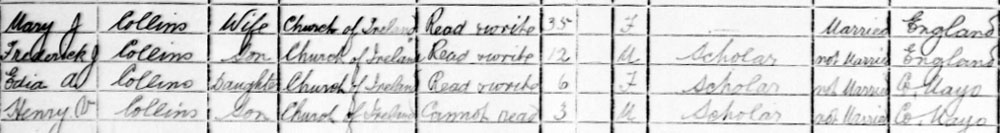 Mary J Collins Wife Church of Ireland Read & write 35 F — Married England
Frederick J Collins Son Church of Ireland Read & write 12 M Scholar not Married England
Edia A. Collins Daughter Church of Ireland Read & write 6 F Scholar not Married Co. Mayo
Henry V Collins Son Church of Ireland Cannot read 3 M Scholar not Married Co. Mayo